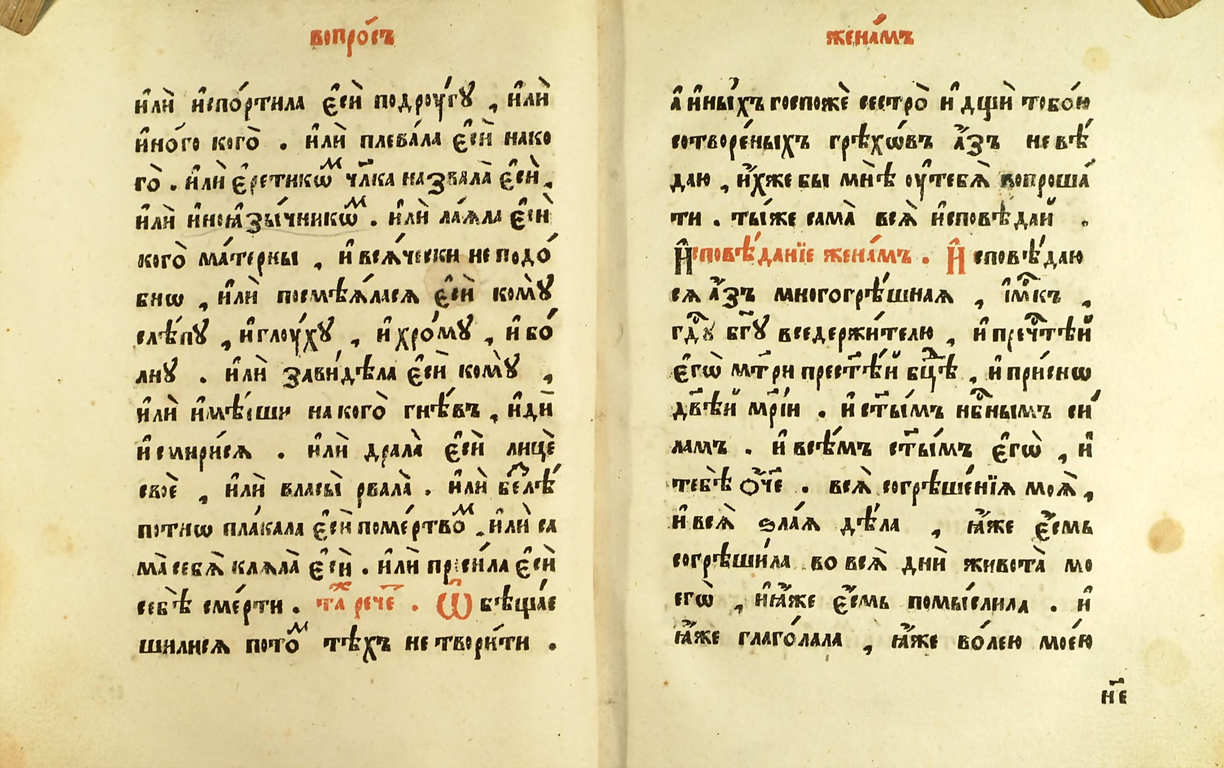 вопро́съ
и҆лѝ и҆спо́ртила є҆сѝ подроу́гꙋ , и҆лѝ
и҆но́го кого̀ . и҆лѝ плева́ла є҆сѝ нако
го̀ . и҆лѝ є҆ретикѡⷨ чл҃ка назвала̀ є҆сѝ ,
и҆лѝ и҆ноꙗ҆зы́чникѡⷨ . и҆лѝ ла́ѧла є҆сѝ
кого̀ ма́терны , и҆ всѧ́чески не подо́
бнѡ , и҆лѝ посмѣѧ́ласѧ є҆сѝ комꙋ̀
слѣ́пꙋ , и҆ глоу́хꙋ , и҆ хро́мꙋ , и҆ бо́
лнꙋ . и҆лѝ зави́дѣла є҆сѝ комꙋ̀ ,
и҆лѝ и҆мѣ́еши на кого̀ гнѣ́въ , и҆дѝ
и҆ смири́сѧ . и҆лѝ драла̀ є҆сѝ лицѐ
своѐ , и҆лѝ власы̀ рвала̀ . и҆лѝ без̾лѣ́
потнѡ пла́кала є҆сѝ поме́ртвоⷨ , и҆лѝ са
ма̀ себѧ̀ клѧла̀ є҆сѝ . и҆лѝ проси́ла є҆сѝ
себѣ̀ сме́рти . таⷤ рече҇ . Ѿ бѣща́е
шилисѧ потоⷨ тѣ́хъ не твори́ти .
жена́мъ
а҆ и҆ны́хъ госпожѐ сестро̀ и҆ дщѝ тобо́ю
сотворе́ныхъ грѣхѡ́въ а҆́зъ не вѣ́
даю , и҆́хже бы мнѣ̀ оу҆тебѧ̀ вопроша́
ти . ты́же сама̀ всѧ̀ и҆сповѣ́дай .
И҆сповѣ́данїе жена́мъ . И҆ сповѣ́даю
сѧ а҆́зъ многогрѣ́шнаѧ , и҆́мк҇ъ ,
гдⷭ҇ꙋ бг҃ꙋ вседержи́телю , и҆ пречⷭ҇тѣй
є҆гѡ̀ мт҃ри прест҃ѣ́й бц҃ѣ , и҆ при́снѡ
дв҃ѣй мр҃і́и . и҆ ст҃ы́мъ нб҃нымъ си́
ламъ . и҆ всѣ́мъ ст҃ы́мъ є҆гѡ̀ , и҆
тебѣ̀ ѻ҆́ч҃е . всѧ̀ согрѣше́нїѧ моѧ̀ ,
и҆ всѧ̀ ѕла́ѧ дѣла̀ , ꙗ҆́же є҆́смь
согрѣши́ла во всѧ̀ днѝ живота̀ мо
егѡ̀ , и҆ ꙗ҆́же є҆́смь помы́слила . и҆
ꙗ҆́же глаго́лала , ꙗ҆́же во́лею мое́ю
н҃е